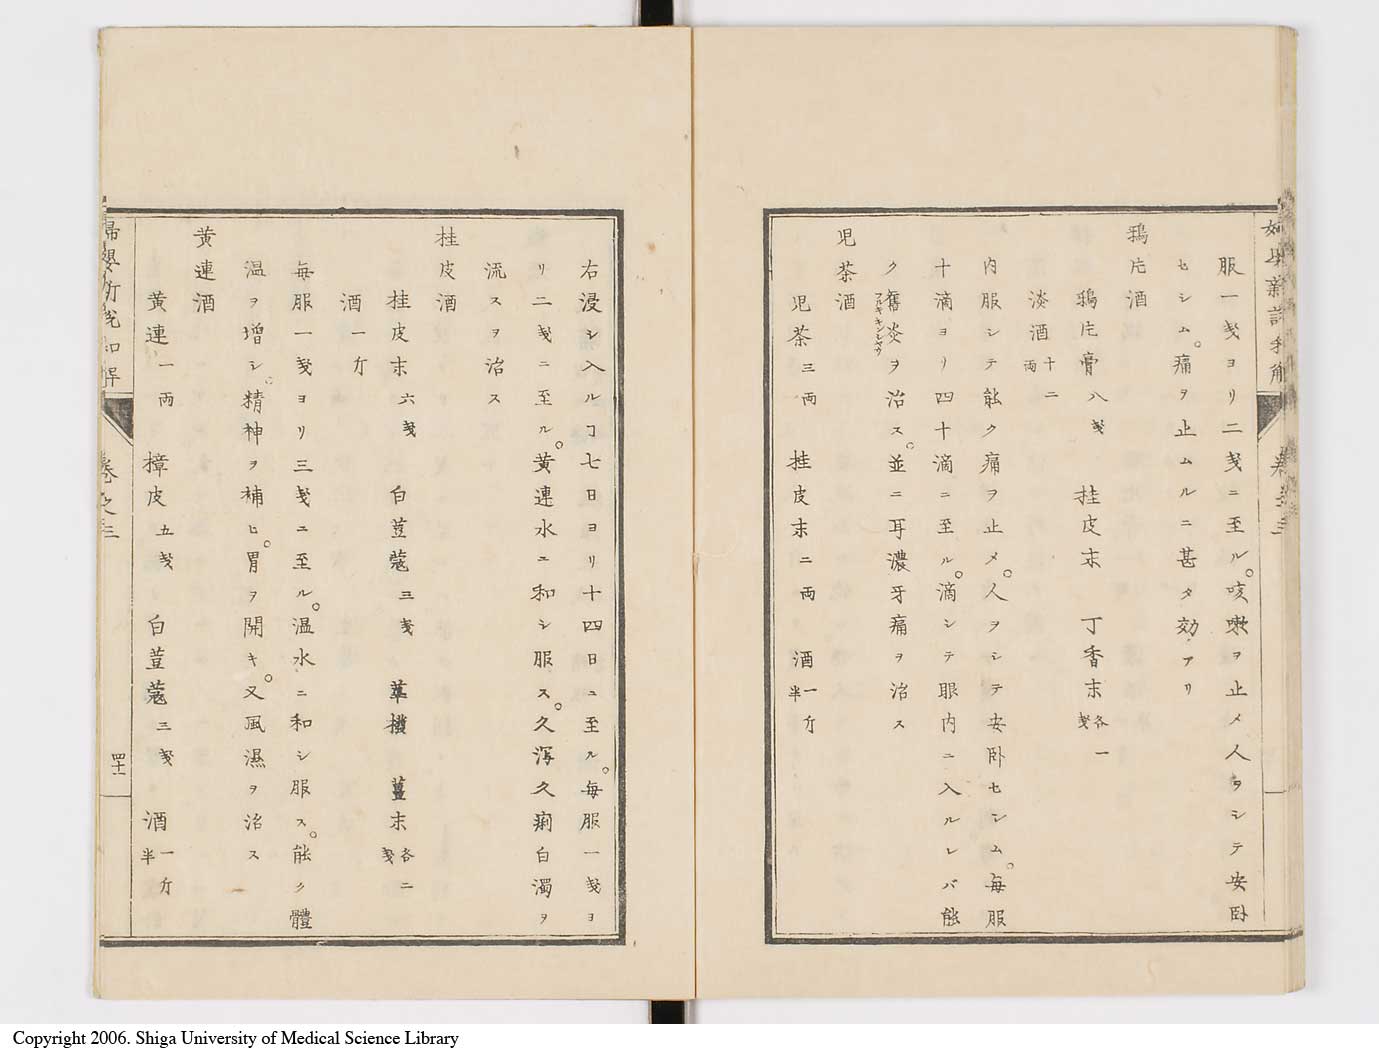 服一戔ヨリ二戔ニ至ル。咳嗽ヲ止メ人ヲシテ安卧
セシム。痛ヲ止ムルニ甚タ効アリ
鴉片酒
鴉片膏八戔 桂皮末 丁香末各一戔
淡酒十二両
内服シテ能ク痛ヲ止メ。人ヲシテ安卧セシム。毎服
十滴ヨリ四十滴ニ至ル。滴シテ眼内ニ入ルレバ能
ク舊炎ヲ治ス。並ニ耳濃牙痛ヲ治ス
児茶酒
児茶三両 桂皮末二両 酒一斤半
右浸シ入ルヿ七日ヨリ十四日ニ至ル。毎服一戔ヨ
リ二戔ニ至ル。黄連水ニ和シ服ス。久瀉久痢白濁ヲ
流スヲ治ス
桂皮酒
桂皮末六戔 白荳蔻三戔 蓽撥 薑末各二戔
酒一斤
毎服一戔ヨリ三戔ニ至ル。温水ニ和シ服ス。能ク體
温ヲ増シ。精神ヲ補ヒ。胃ヲ開キ。又風濕ヲ治ス
黄連酒
黄連一両 橙皮五戔 白荳蔻三戔 酒一斤半
婦嬰新説和解 巻之三 四十一
Copyright 2006. Shiga University of Medical Science Library